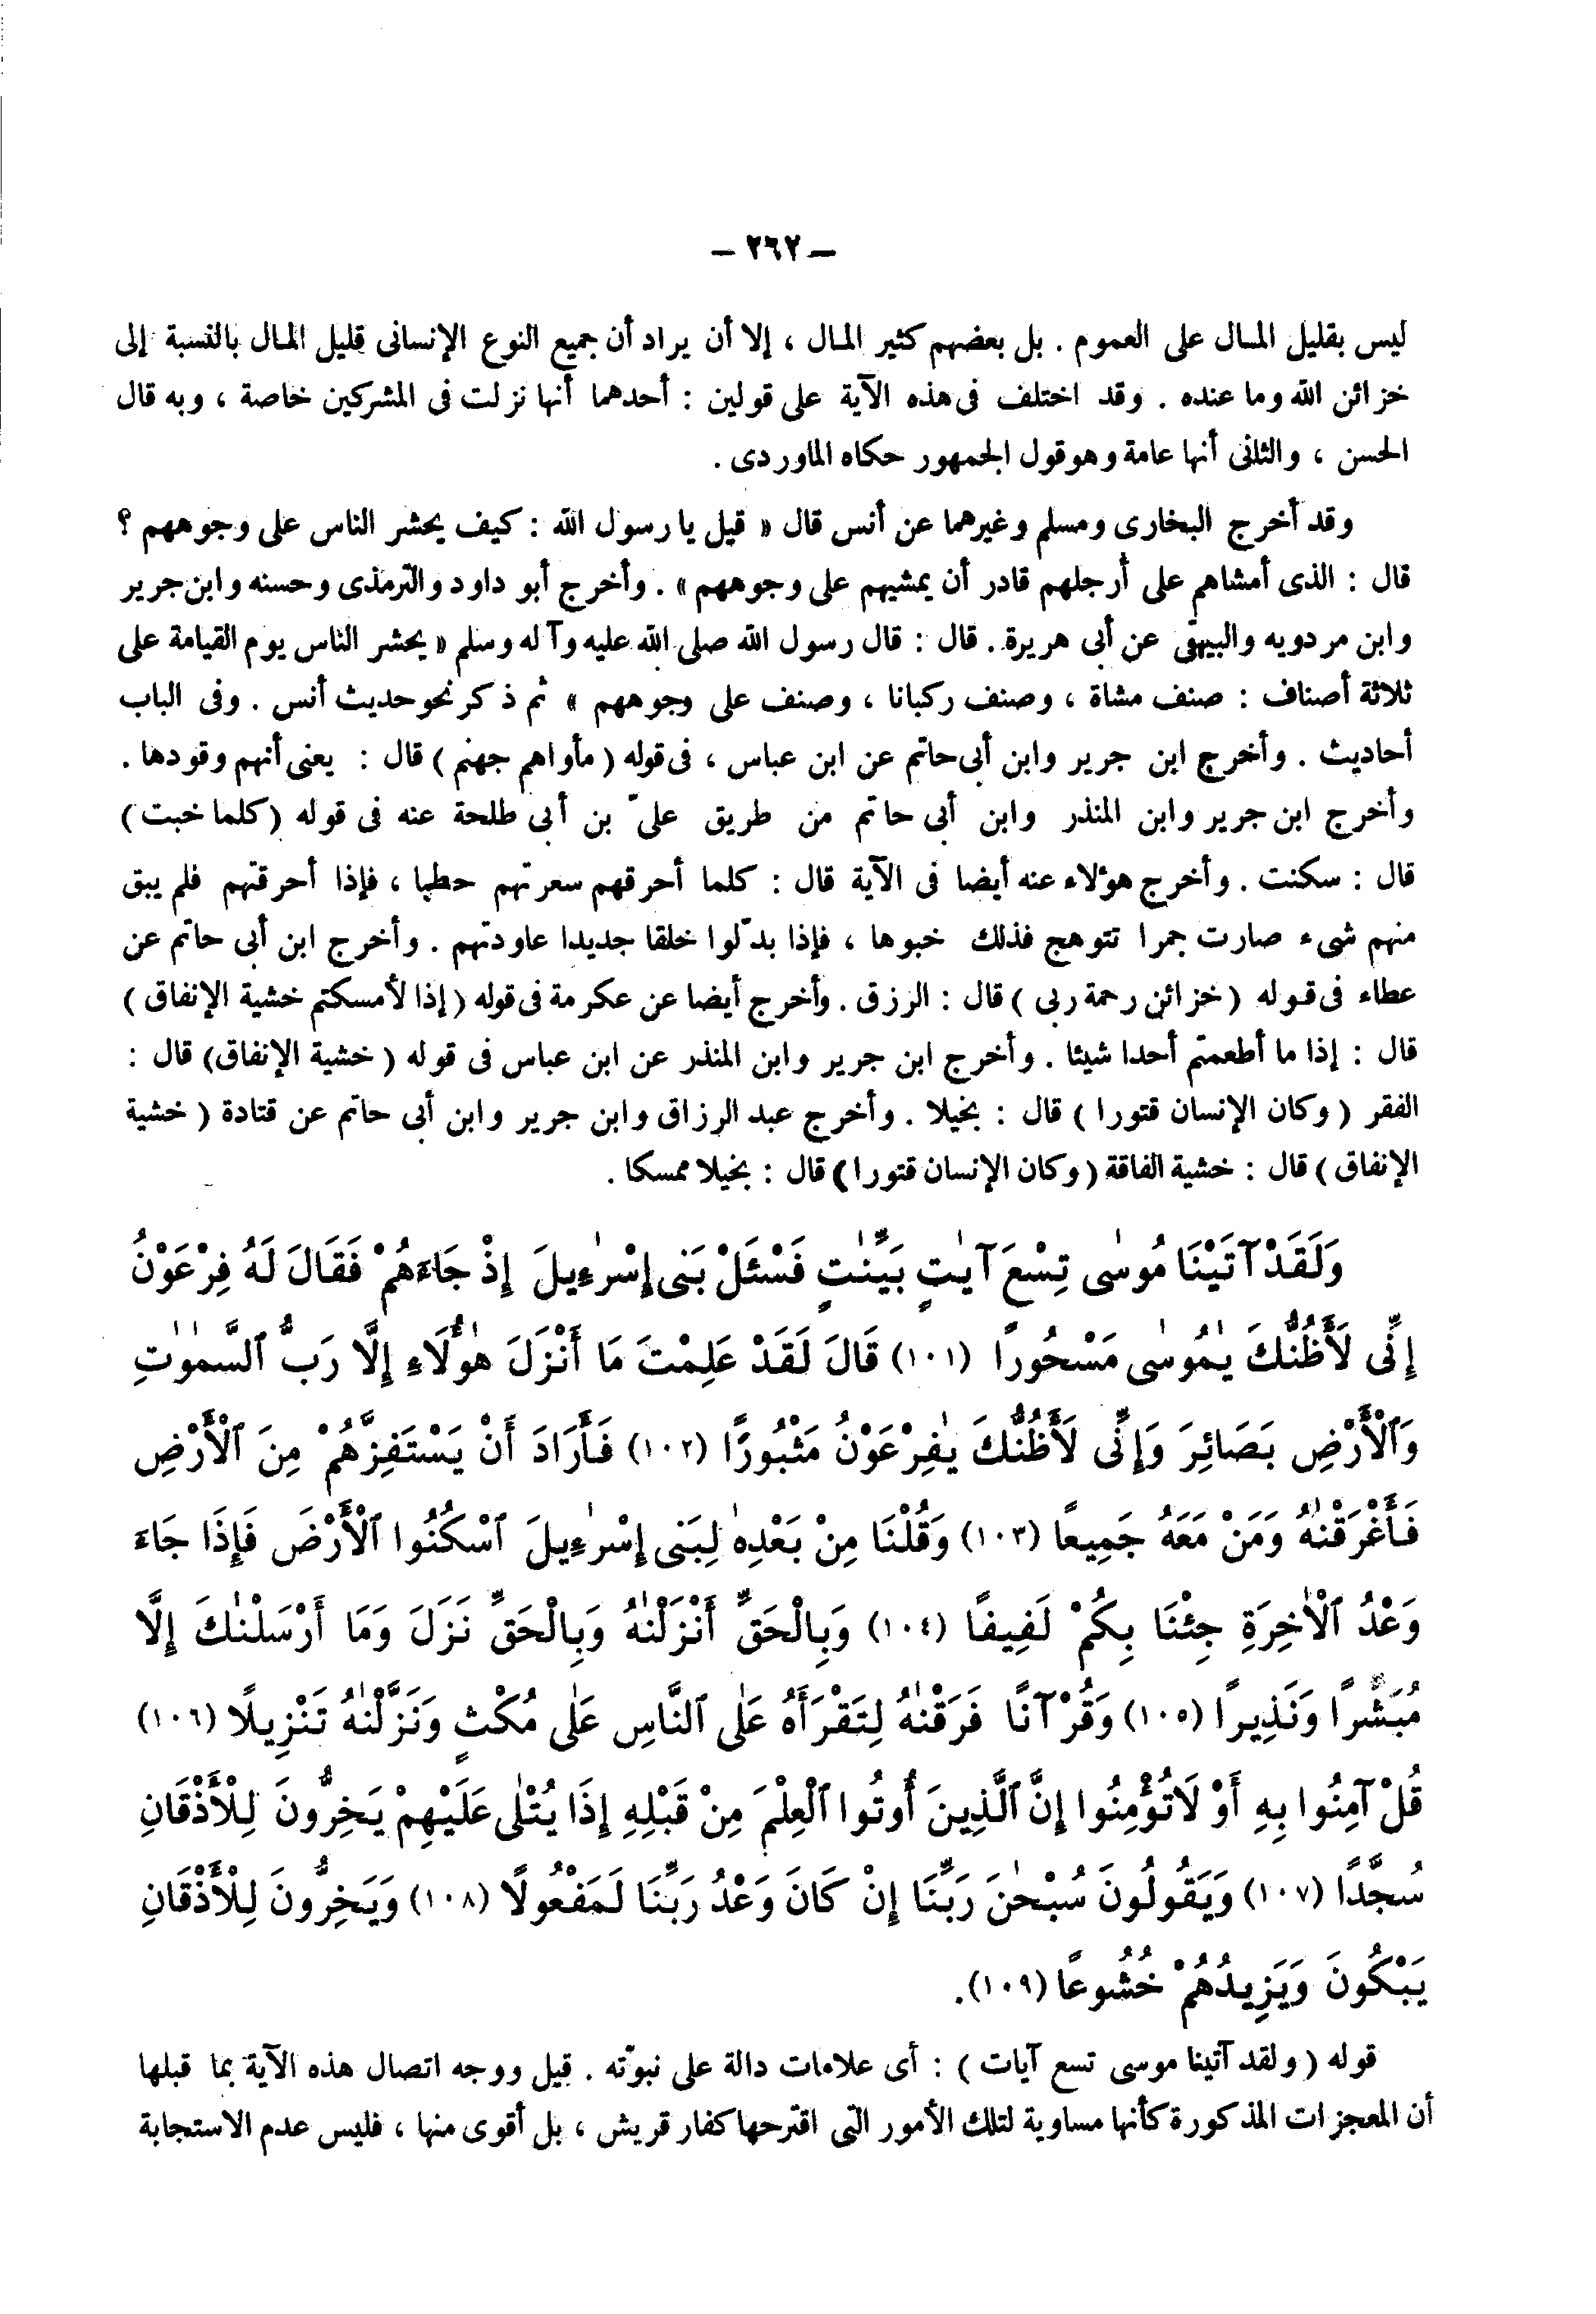 — ٢٦٢ —
ليس بقليل المال على العموم . بل بعضهم كثير المال ، إلا أن يراد أن جميع النوع الإنسانى قليل المال بالنسبة إلى
خزائن الله وما عنده . وقد اختلف فى هذه الآية على قولين : أحدهما أنها نزلت فى المشركين خاصة ، وبه قال
الحسن ، والثانى أنها عامة وهو قول الجمهور حكاه الماوردى .
وقد أخرج البخارى ومسلم وغيرهما عن أنس قال « قيل يا رسول الله : كيف يحشر الناس على وجوههم ؟
قال : الذى أمشاهم على أرجلهم قادر أن يمشيهم على وجوههم » . وأخرج أبو داود والترمذى وحسنه وابن جرير
وابن مردويه والبيهقى عن أبى هريرة . قال : قال رسول الله صلى الله عليه وآله وسلم « يحشر الناس يوم القيامة على
ثلاثة أصناف : صنف مشاة ، وصنف ركبانا ، وصنف على وجوههم » ثم ذكر نحو حديث أنس . وفى الباب
أحاديث . وأخرج ابن جرير وابن أبى حاتم عن ابن عباس ، فى قوله ( مأواهم جهنم ) قال : يعنى أنهم وقودها .
وأخرج ابن جرير وابن المنذر وابن أبى حاتم من طريق علىّ بن أبى طلحة عنه فى قوله ( كلما خبت )
قال : سكنت . وأخرج هؤلاء عنه أيضا فى الآية قال : كلما أحرقهم سعرتهم حطبا ، فإذا أحرقتهم فلم يبق
منهم شىء صارت جمرا تتوهج فذلك خبوها ، فإذا بدّلوا خلقا جديدا عاودتهم . وأخرج ابن أبى حاتم عن
عطاء فى قوله ( خزائن رحمة ربى ) قال : الرزق . وأخرج أيضا عن عكرمة فى قوله ( إذا لأمسكتم خشية الإنفاق )
قال : إذا ما أطعمتم أحدا شيئا . وأخرج ابن جرير وابن المنذر عن ابن عباس فى قوله ( خشية الإنفاق ) قال :
الفقر ( وكان الإنسان قتورا ) قال : بخيلا . وأخرج عبد الرزاق وابن جرير وابن أبى حاتم عن قتادة ( خشية
الإنفاق ) قال : خشية الفاقة ( وكان الإنسان قتورا ) قال : بخيلا ممسكا .
وَلَقَدْ آتَيْنَا مُوسٰى تِسْعَ آيٰتٍ بَيِّنٰتٍ فَسْئَلْ بَنِى إِسْرٰءِيلَ إِذْ جَاءَهُمْ فَقَالَ لَهُ فِرْعَوْنُ
إِنِّى لَأَظُنُّكَ يٰمُوسٰى مَسْحُورًا (١٠١) قَالَ لَقَدْ عَلِمْتَ مَا أَنْزَلَ هٰؤُلَاءِ إِلَّا رَبُّ ٱلسَّمٰوٰتِ
وَٱلْأَرْضِ بَصَائِرَ وَإِنِّى لَأَظُنُّكَ يٰفِرْعَوْنُ مَثْبُورًا (١٠٢) فَأَرَادَ أَنْ يَسْتَفِزَّهُمْ مِنَ ٱلْأَرْضِ
فَأَغْرَقْنٰهُ وَمَنْ مَعَهُ جَمِيعًا (١٠٣) وَقُلْنَا مِنْ بَعْدِهٰ لِبَنِى إِسْرٰءِيلَ ٱسْكُنُوا ٱلْأَرْضَ فَإِذَا جَاءَ
وَعْدُ ٱلْاٰخِرَةِ جِئْنَا بِكُمْ لَفِيفًا (١٠٤) وَبِالْحَقِّ أَنْزَلْنٰهُ وَبِالْحَقِّ نَزَلَ وَمَا أَرْسَلْنٰكَ إِلَّا
مُبَشِّرًا وَنَذِيرًا (١٠٥) وَقُرْآنًا فَرَقْنٰهُ لِتَقْرَأَهُ عَلٰى النَّاسِ عَلٰى مُكْثٍ وَنَزَّلْنٰهُ تَنْزِيلًا (١٠٦)
قُلْ آمِنُوا بِهِ أَوْ لَا تُؤْمِنُوا إِنَّ ٱلَّذِينَ أُوتُوا ٱلْعِلْمَ مِنْ قَبْلِهِ إِذَا يُتْلٰى عَلَيْهِمْ يَخِرُّونَ لِلْأَذْقَانِ
سُجَّدًا (١٠٧) وَيَقُولُونَ سُبْحٰنَ رَبِّنَا إِنْ كَانَ وَعْدُ رَبِّنَا لَمَفْعُولًا (١٠٨) وَيَخِرُّونَ لِلْأَذْقَانِ
يَبْكُونَ وَيَزِيدُهُمْ خُشُوعًا (١٠٩) .
قوله ( ولقد آتينا موسى تسع آيات ) : أى علامات دالة على نبوّته . قيل ووجه اتصال هذه الآية بما قبلها
أن المعجزات المذكورة كأنها مساوية لتلك الأمور التى اقترحها كفار قريش ، بل أقوى منها ، فليس عدم الاستجابة